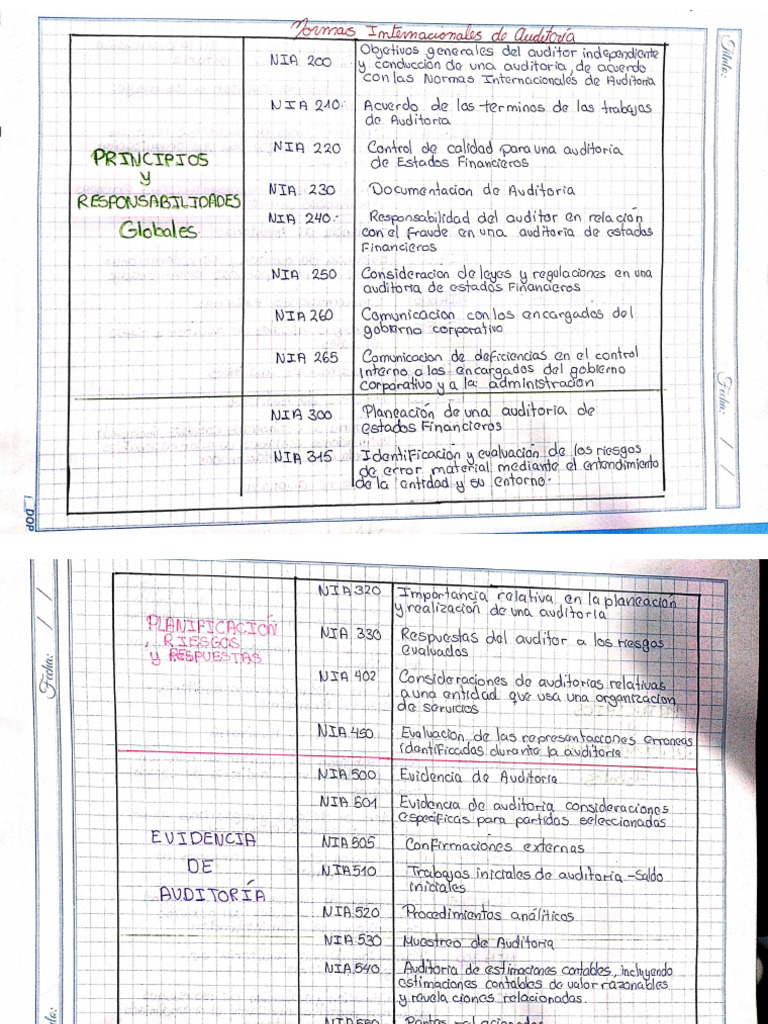 Normas Internacionales de Auditoria
Título:
NIA 200
Objetivos generales del auditor independiente
y conducción de una auditoria, de acuerdo
con las Normas Internacionales de Auditoria
NIA 210.
Acuerdo de los terminos de los trabajos
de Auditoria
PRINCIPIOS
y
RESPONSABILIDADES
Globales
NIA 220
Control de calidad para una auditoria
de Estados Financieros
NIA 230
Documentacion de Auditoria
NIA 240.
Responsabilidad del auditor en relación
con el fraude en una auditoria de estados
Financieros
NIA 250
Consideracion de leyes y regulaciones en una
auditoria de estados Financieros
NIA 260
Comunicacion con los encargados del
gobierno corporativo
NIA 265
Comunicacion de deficiencias en el control
interno a los encargados del gobierno
corporativo y a la administracion
Fecha: / /
NIA 300
Planeación de una auditoria de
estados Financieros
NIA 315
Identificación y evaluación de los riesgos
de error material mediante el entendimiento
de la entidad y su entorno.
Fecha: / /
PLANIFICACIÓN
, RIESGOS
y RESPUESTAS
NIA 320
Importancia relativa en la planeación
y realización de una auditoria
NIA 330
Respuestas del auditor a los riesgos
evaluados
NIA 402
Consideraciones de auditorias relativas
a una entidad que usa una organizacion
de servicios
NIA 450
Evaluacion de las representaciones erroneas
identificadas durante la auditoria
EVIDENCIA
DE
AUDITORÍA
NIA 500
Evidencia de Auditoria
NIA 501
Evidencia de auditoria consideraciones
especificas para partidas seleccionadas
NIA 505
Confirmaciones externas
NIA 510
Trabajos iniciales de auditoria - Saldo
iniciales
NIA 520
Procedimientos análiticos
NIA 530
Muestreo de Auditoria
NIA 540
Auditoria de estimaciones contables, incluyendo
estimaciones contables de valor razonables
y revelaciones relacionadas.